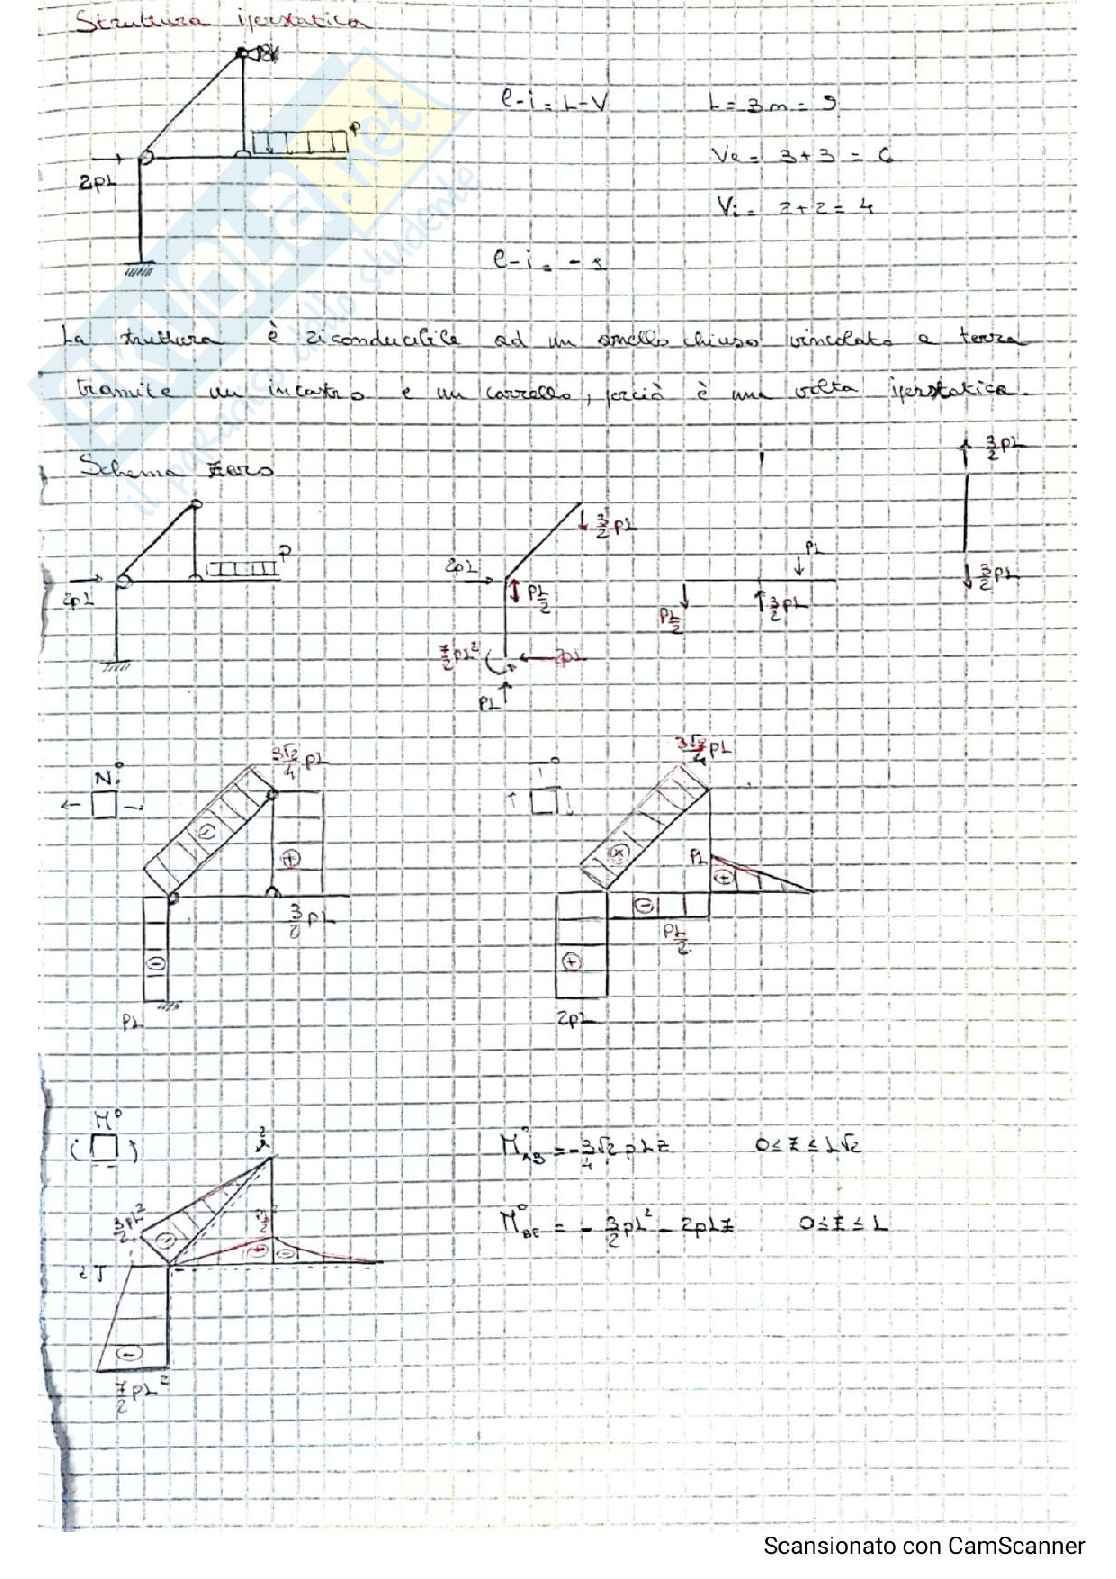 Struttura iperstatica
e-i = L-V
L = 3m = 9
P
2pL
Ve = 3+3 = 6
Vi = 2+2 = 4
e-i = -1
La struttura è riconducibile ad un anello chiuso vincolato a terra
tramite un incastro e un carrello, perciò è una volta iperstatica.
Schema zero
3/2 pL
P
2pL
2pL
3/2 pL
pL/2
pL
pL/2
3/2 pL
3/2 pL
7/2 pL²
2pL
pL
N°
3√2/4 pL
3/2 pL
pL
T°
3√2/4 pL
pL
pL/2
2pL
M°
M°AB = -3/4 √2 pLz 0 ≤ z ≤ L√2
3/2 pL²
M°BE = - 3/2 pL² - 2pLz 0 ≤ z ≤ L
7/2 pL²
Scansionato con CamScanner